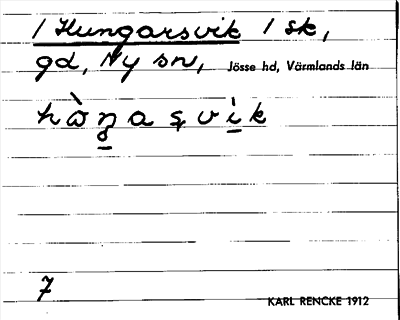 1 Hungarsvik 1 sk,
gd, Ny sn, Jösse hd, Värmlands län
7 KARL RENCKE 1912